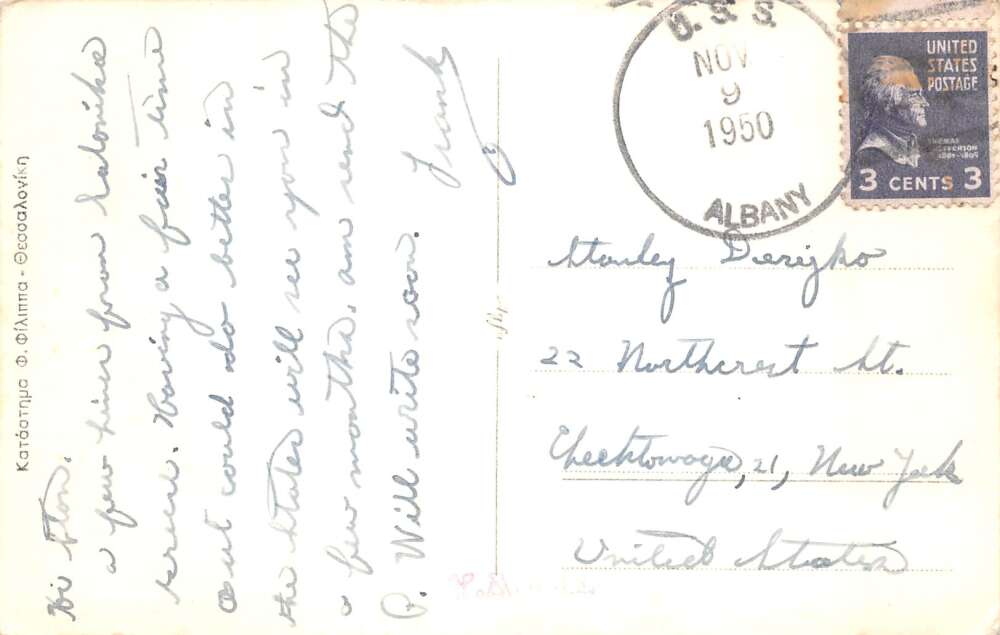 Κατάστημα Φ. Φίλιππα - Θεσσαλονίκη
Hi Stan.
a few lines from Salonika
Greece. Having a fair time
but could do better in
the States will see you in
a few months, am send the
P. Will write soon.
Frank
U.S.S.
NOV
9
1950
ALBANY
UNITED
STATES
POSTAGE
THOMAS
JEFFERSON
1801-1809
3 CENTS 3
Stanley Derizko
22 Northcrest St.
Cheektowaga, 21, New York
United States